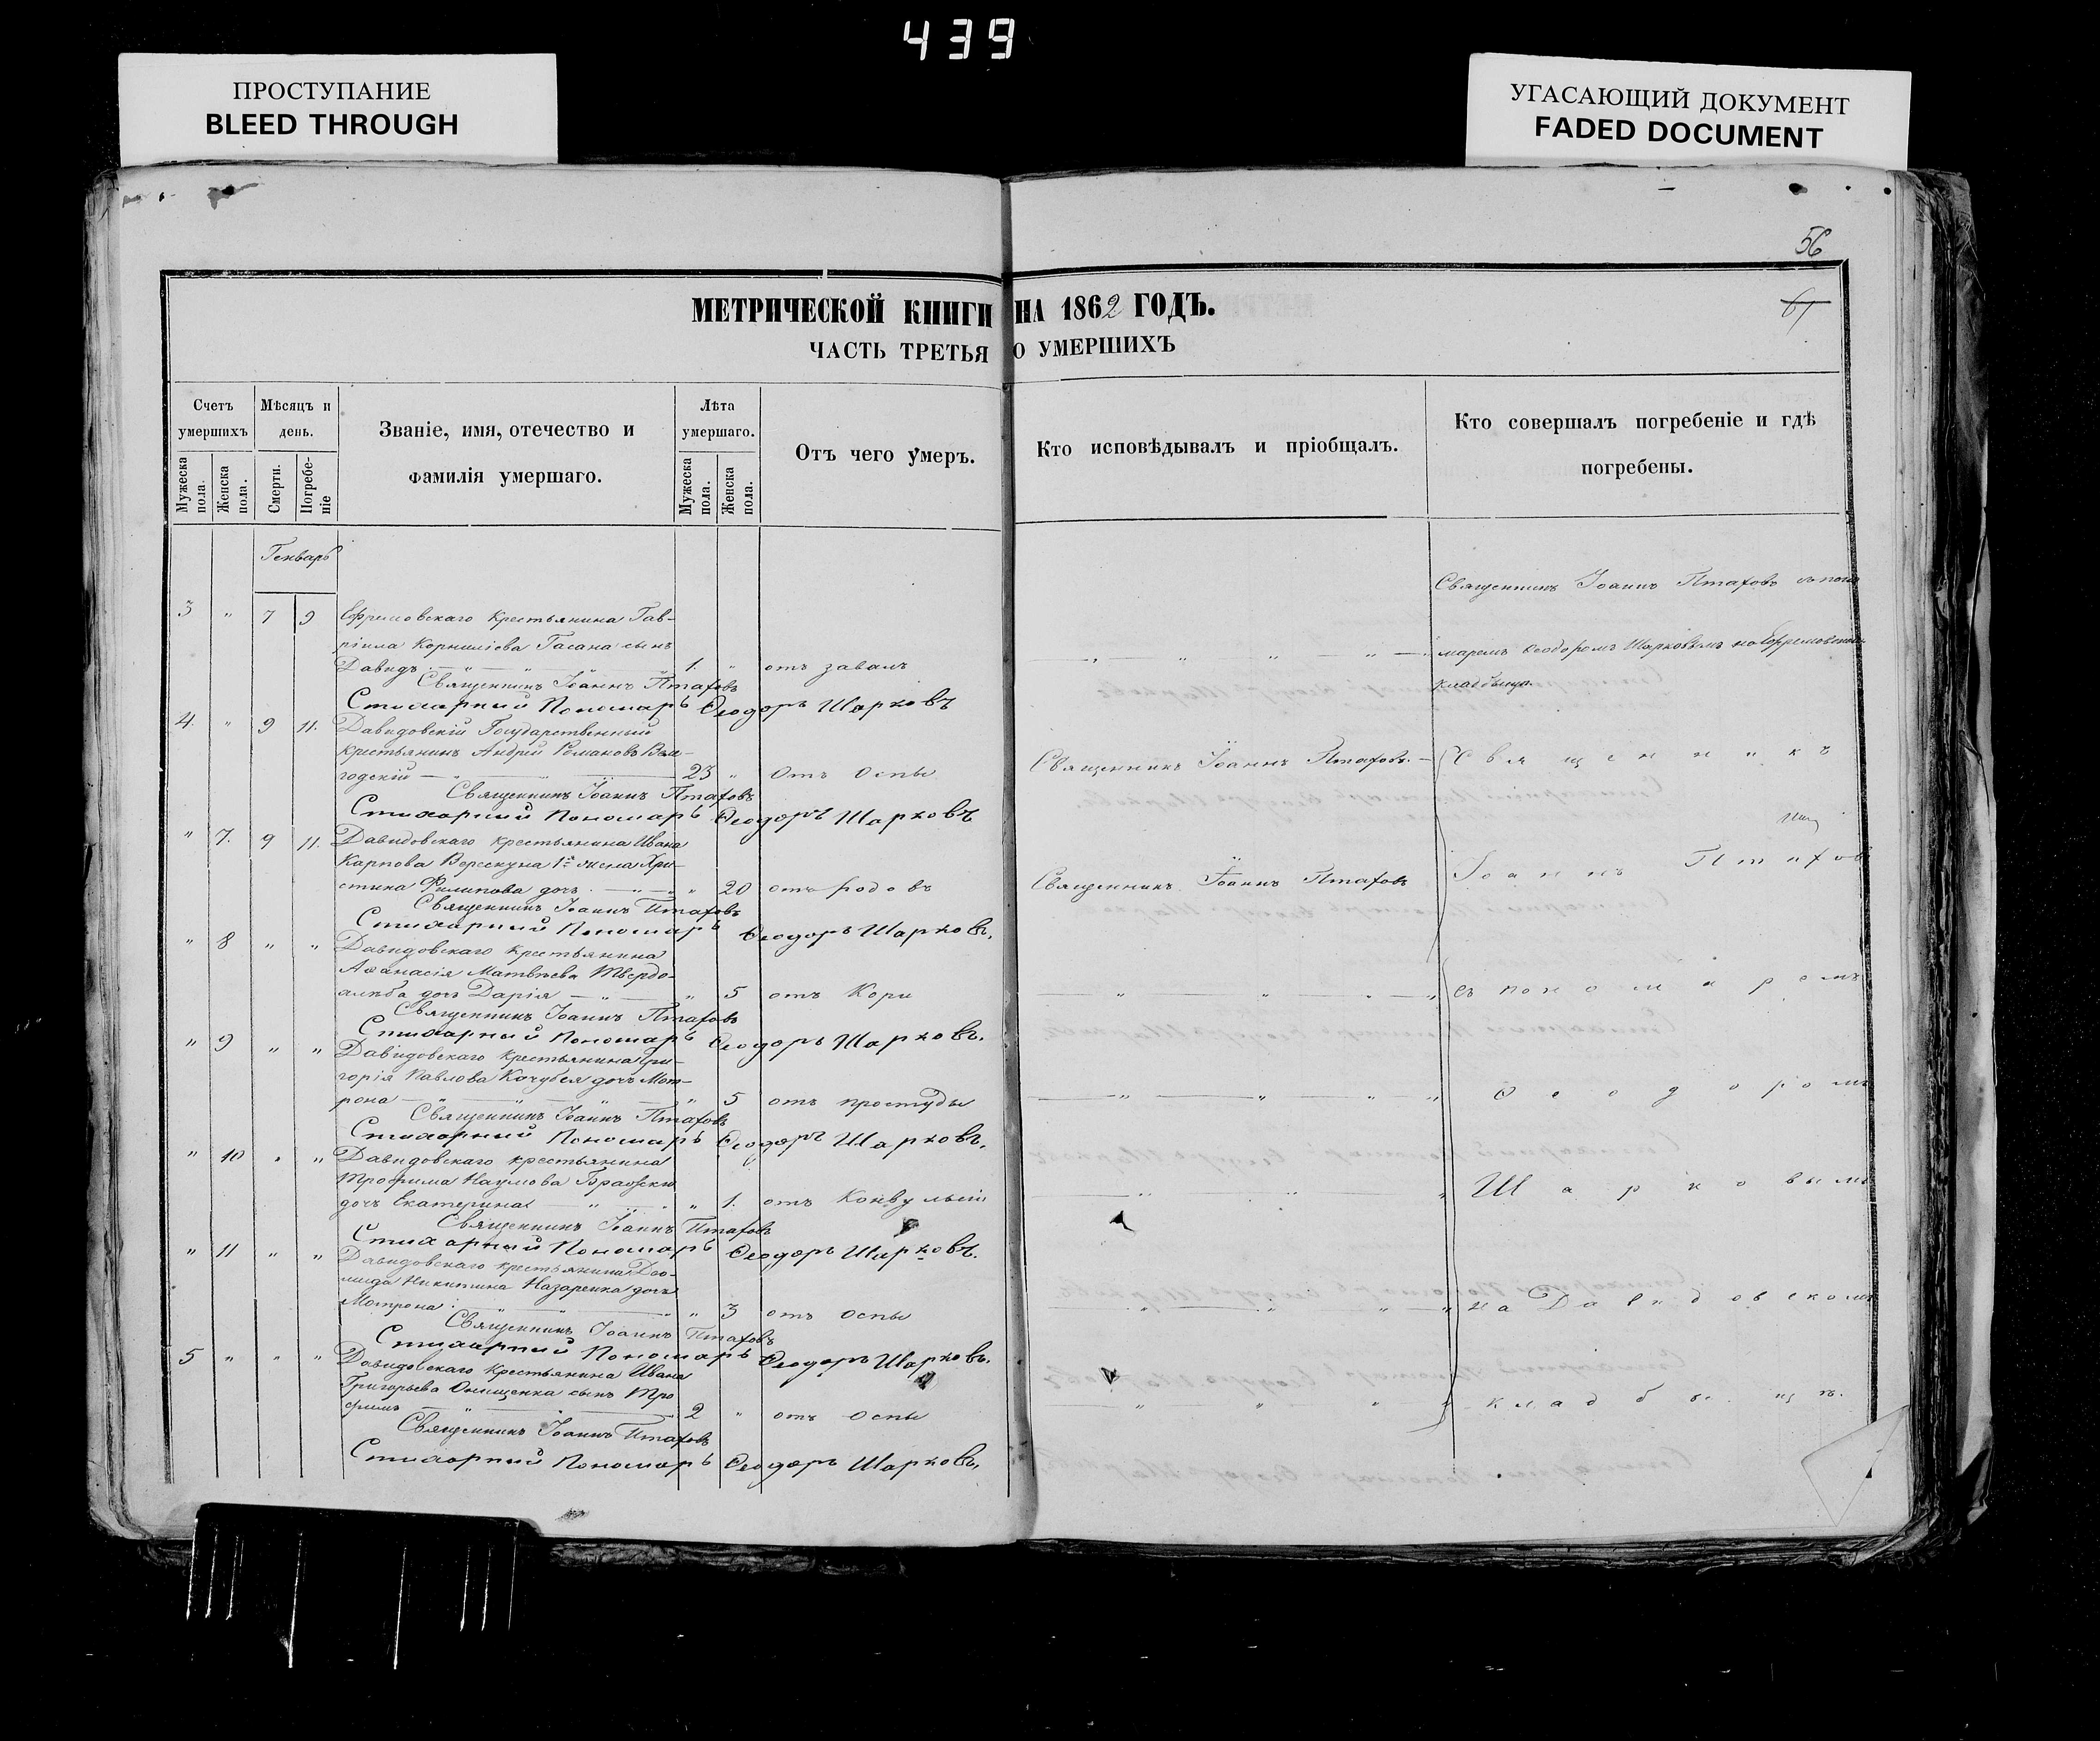 439
ПРОСТУПАНИЕ
BLEED THROUGH
УГАСАЮЩИЙ ДОКУМЕНТ
FADED DOCUMENT
56
61
МЕТРИЧЕСКОЙ КНИГИ НА 1862 ГОДЪ.
ЧАСТЬ ТРЕТЬЯ О УМЕРШИХЪ
Счетъ умершихъ
Мужеска пола.
Женска пола.
Мѣсяцъ и день.
Смерти.
Погребеніе
Званіе, имя, отечество и фамилія умершаго.
Лѣта умершаго.
Мужеска пола.
Женска пола.
Отъ чего умеръ.
Кто исповѣдывалъ и пріобщалъ.
Кто совершалъ погребеніе и гдѣ погребены.
Генварь
Священникъ Іоаннъ Птаховъ съ поно
3 " 7 9 Ефремовскаго крестьянина Гав-
ріила Корниліева Гасана сынъ маремъ Ѳеодоромъ Шарковымъ на Ефремовскомъ
Давидъ 1. " отъ завалъ кладбищѣ.
Священникъ Іоаннъ Птаховъ
Стихарный Пономарь Ѳеодоръ Шарковъ
4. " 9 11. Давидовскій Государственный
крестьянинъ Андрей Романовъ
годскій 23 " Отъ Оспы Священникъ Іоаннъ Птаховъ. Священникъ
Священникъ Іоаннъ Птаховъ
Стихарный Пономарь Ѳеодоръ Шарковъ
" 7. 9 11. Давидовскаго крестьянина Ивана
Карпова Верескуна 1я жена Хри-
стина Филипова дочь " 20 отъ родовъ Священникъ Іоаннъ Птаховъ Іоаннъ Птаховъ
Священникъ Іоаннъ Птаховъ
Стихарный Пономарь Ѳеодоръ Шарковъ.
" 8 " " Давидовскаго крестьянина
Аѳанасія Матвѣева Твердо-
хлѣба дочь Дарія " 5 отъ Кори съ пономаремъ
Священникъ Іоаннъ Птаховъ
Стихарный Пономарь Ѳеодоръ Шарковъ.
" 9 " " Давидовскаго крестьянина Гри-
горія Павлова Кочубея дочь Мот-
рона " 5 отъ простуды Ѳеодоромъ
Священникъ Іоаннъ Птаховъ
Стихарный Пономарь Ѳеодоръ Шарковъ.
" 10 " " Давидовскаго крестьянина
Трофима Наумова
дочь Екатерина " 1. отъ Конвульсіи Шарковымъ
Священникъ Іоаннъ Птаховъ
Стихарный Пономарь Ѳеодоръ Шарковъ.
" 11 " " Давидовскаго крестьянина Діо-
мида Никитина Назаренка дочь
Мотрона " 3 отъ оспы на Давидовскомъ
Священникъ Іоаннъ Птаховъ
Стихарный Пономарь Ѳеодоръ Шарковъ.
5 " " " Давидовскаго крестьянина Ивана
Григорьева Онищенка сынъ Тро
фимъ 2 " отъ оспы кладбищѣ.
Священникъ Іоаннъ Птаховъ
Стихарный Пономарь Ѳеодоръ Шарковъ.